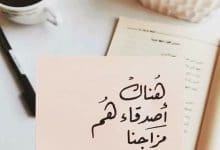 هُناكَ
أصدقاء هُم
مزاجنا